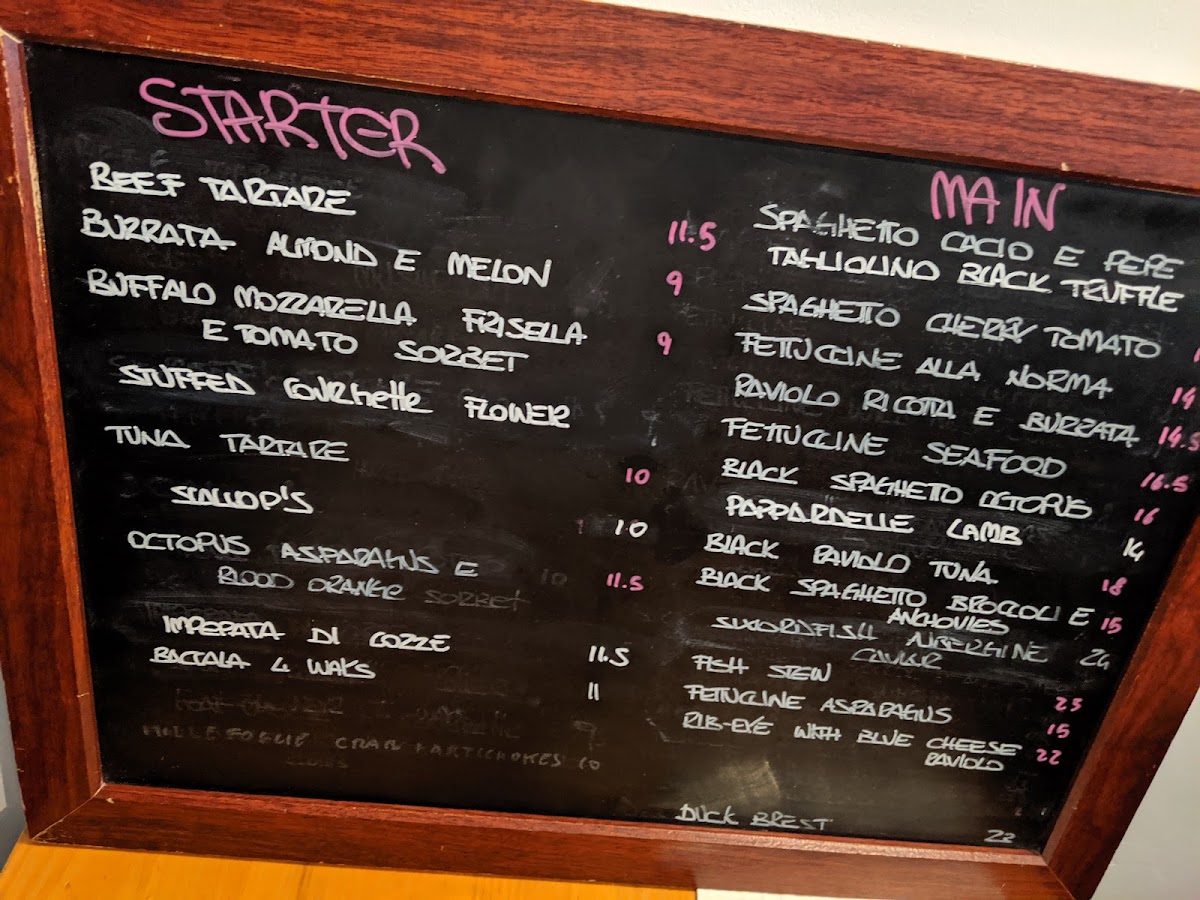 STARTER
BEEF TARTARE 11.5
BURRATA ALMOND E MELON 9
BUFFALO MOZZARELLA FRISELLA
E TOMATO SORBET 9
STUFFED COURGETTE FLOWER
TUNA TARTARE 10
SCALLOP'S 10
OCTOPUS ASPARAGUS E
BLOOD ORANGE SORBET 11.5
IMPEPATA DI COZZE 11.5
BACCALA 4 WAKS 11
MILLEFOGLIE CRAB + ARTICHOKES 10
MAIN
SPAGHETTO CACIO E PEPE
TAGLIOLINO BLACK TRUFFLE
SPAGHETTO CHERRY TOMATO
FETTUCCINE ALLA NORMA 14
RAVIOLO RICOTTA E BURRATA 14.5
FETTUCCINE SEAFOOD 16.5
BLACK SPAGHETTO OCTOPUS 16
PAPPARDELLE LAMB 14
BLACK RAVIOLO TUNA 18
BLACK SPAGHETTO BROCCOLI E 15
ANCHOVIES
SWORDFISH AUBERGINE 24
CAVIAR
FISH STEW 23
FETTUCCINE ASPARAGUS 15
RIB-EYE WITH BLUE CHEESE 22
RAVIOLO
DUCK BREST 23